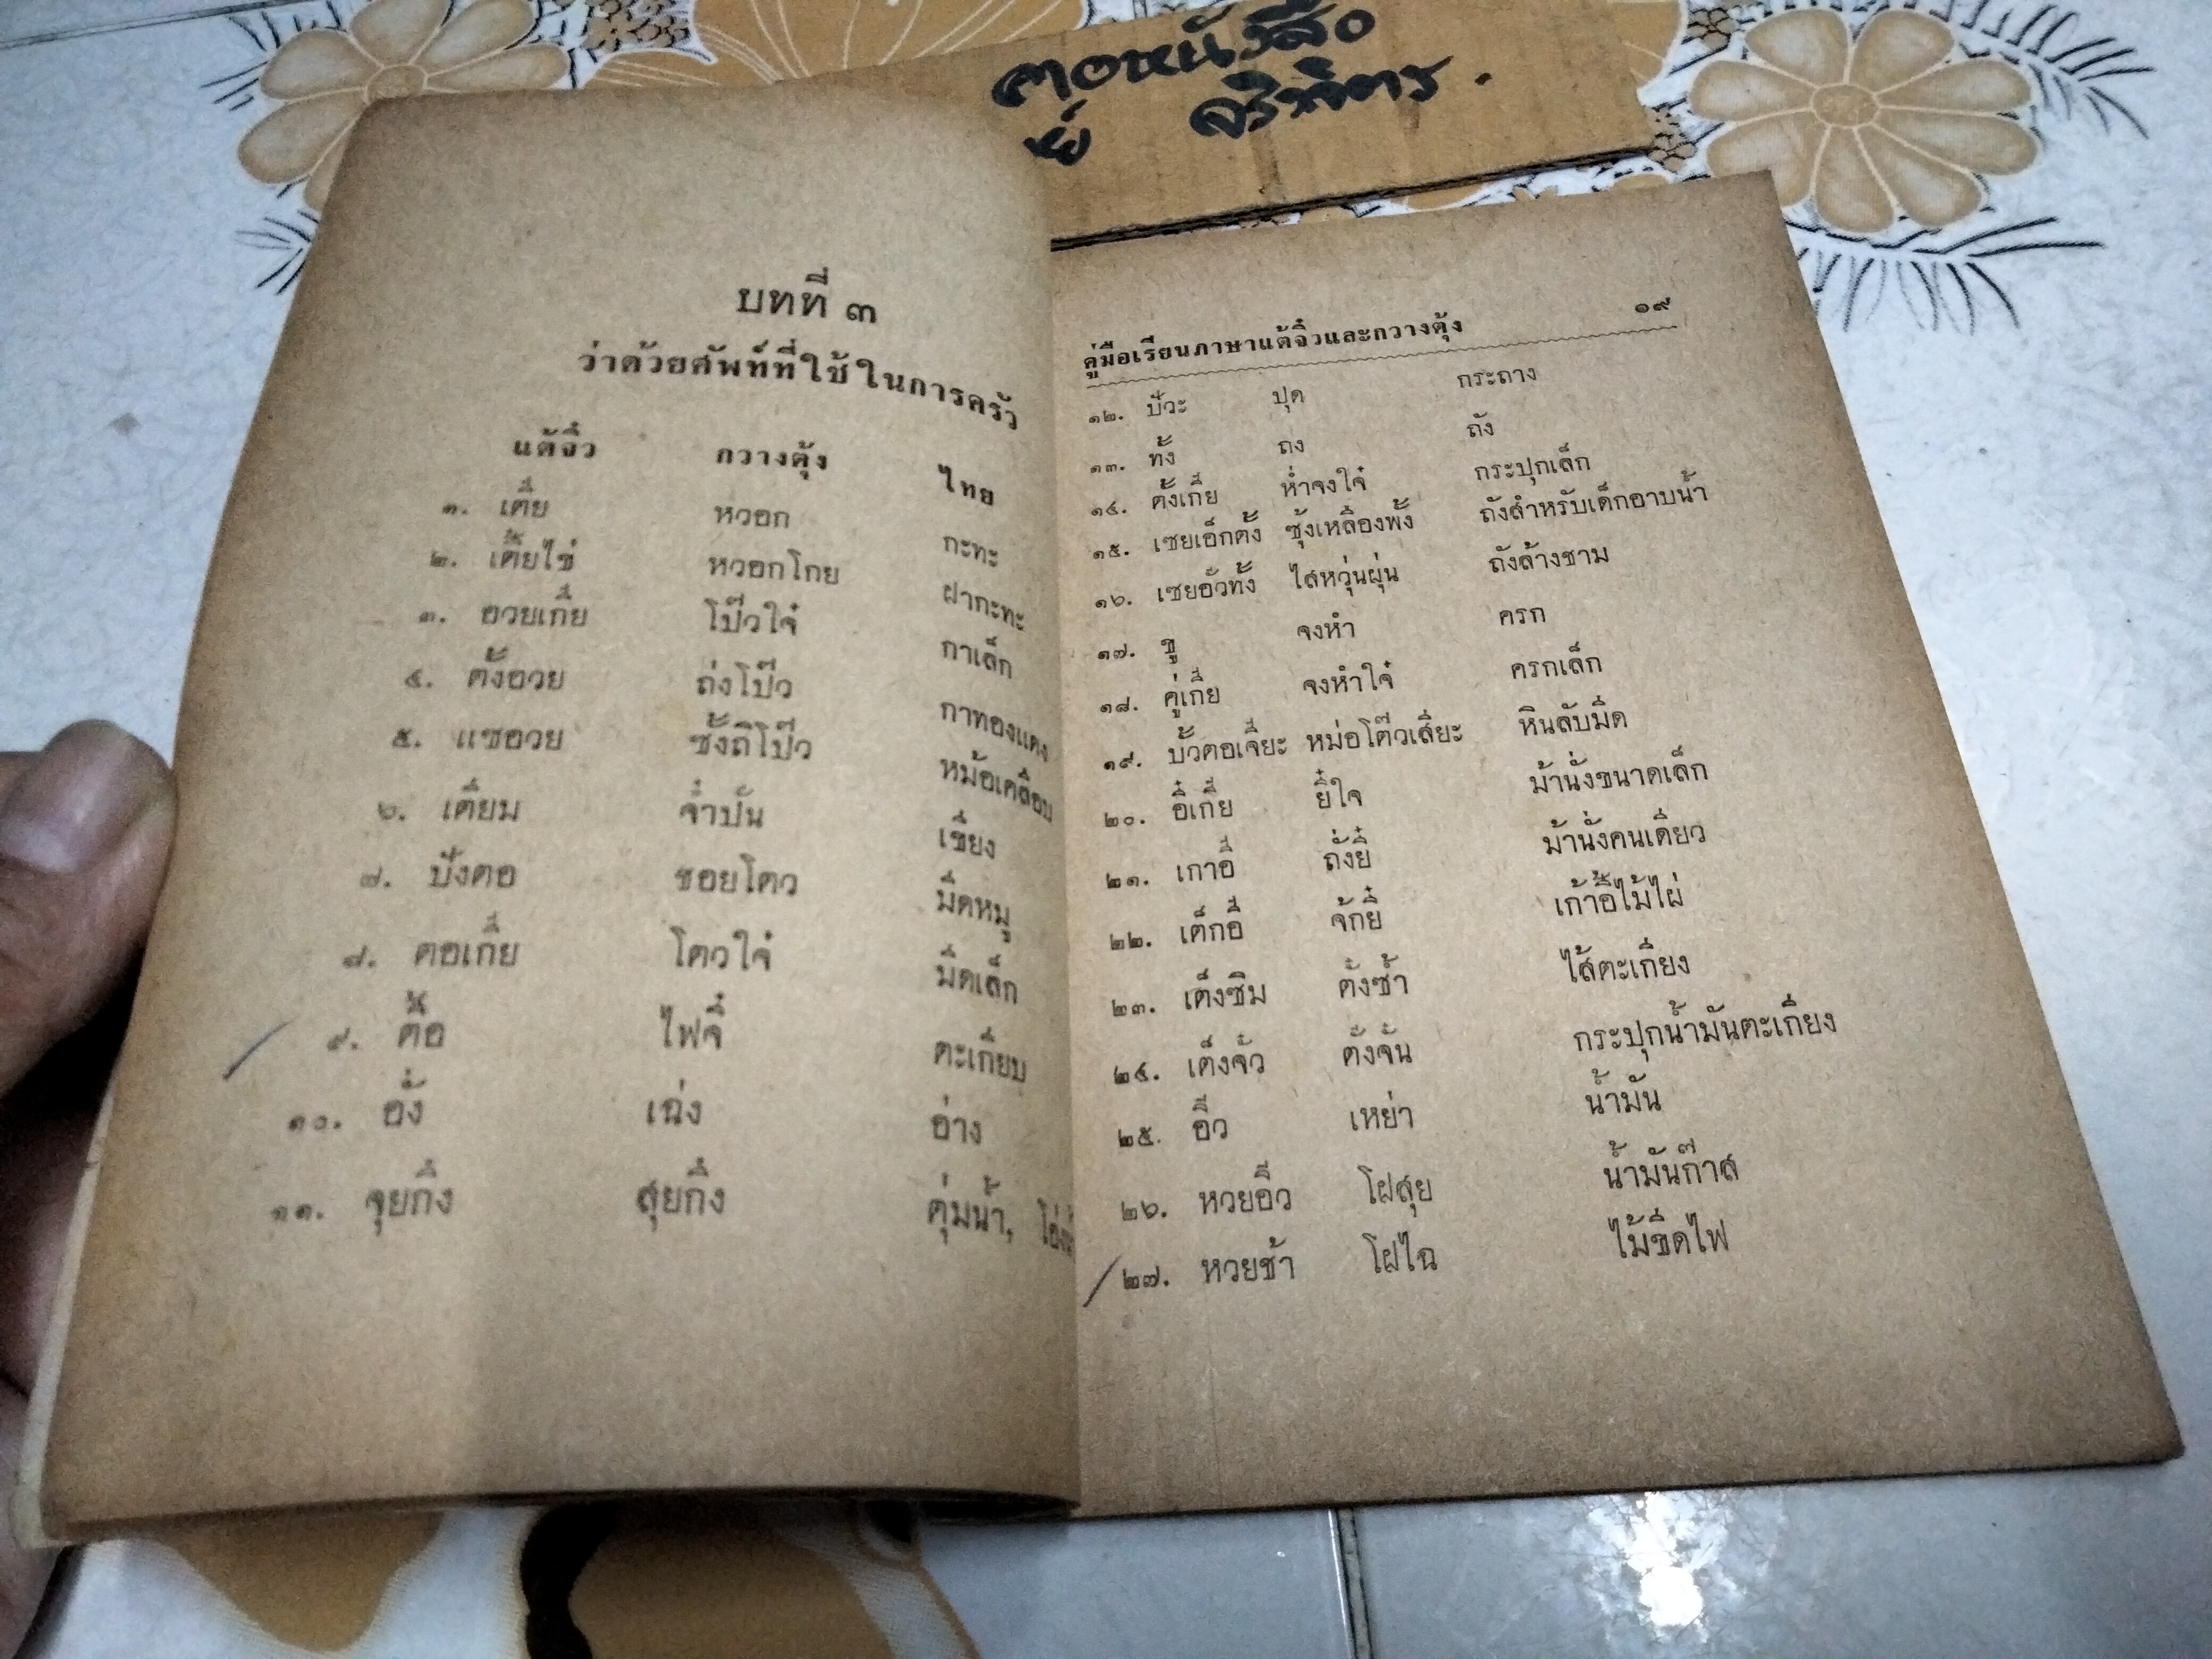 ฅอหนังสือ
ย์ จริพิตร.
บทที่ ๓
ว่าด้วยศัพท์ที่ใช้ในการครัว
แต้จิ๋ว กวางตุ้ง ไทย
๑. เตี๋ย หวอก กะทะ
๒. เตี๋ยไข่ หวอกโกย ฝากะทะ
๓. อวยเกี๋ย โป๊วใจ๋ กาเล็ก
๔. ตั้งอวย ถ่งโป๊ว กาทองแดง
๕. แซอวย ซั้งถิโป๊ว หม้อเคลือบ
๖. เตียม จ๋ำปั่น เขียง
๗. ปังตอ ชอยโตว มีดหมู
๘. ตอเกี๋ย โตวใจ๋ มีดเล็ก
๙. ตื๋อ ไฟจี๋ ตะเกียบ
๑๐. อั่ง เฉ่ง อ่าง
๑๑. จุยกิ๋ง สุยกิ๋ง ตุ่มน้ำ,
คู่มือเรียนภาษาแต้จิ๋วและกวางตุ้ง ๑๙
๑๒. ปั๋วะ ปุด กระถาง
๑๓. ทั้ง ถง ถัง
๑๔. ตั้งเกี๋ย ห่ำจงใจ๋ กระปุกเล็ก
๑๕. เซยเอ็กตั้ง ซุ้งเหลืองพั้ง ถังสำหรับเด็กอาบน้ำ
๑๖. เซยอัวทั้ง ไสหวุ่นผุ่น ถังล้างชาม
๑๗. ขู จงหำ ครก
๑๘. คู่เกี๋ย จงหำใจ๋ ครกเล็ก
๑๙. บั้วตอเจี๋ยะ หม่อโต๊วเสี่ยะ หินลับมีด
๒๐. อี๋เกี๋ย ยี๋ใจ ม้านั่งขนาดเล็ก
๒๑. เกาอี๋ ถั่งยี๋ ม้านั่งคนเดียว
๒๒. เต็กอี๋ จั๊กยี๋ เก้าอี้ไม้ไผ่
๒๓. เต็งซิม ตั้งซ้ำ ไส้ตะเกียง
๒๔. เต็งจั๋ว ตั้งจั้น กระปุกน้ำมันตะเกียง
๒๕. อิ๊ว เหย่า น้ำมัน
๒๖. หวยอิ๊ว โฝสุย น้ำมันก๊าส
๒๗. หวยช้า โฝไฉ ไม้ขีดไฟ